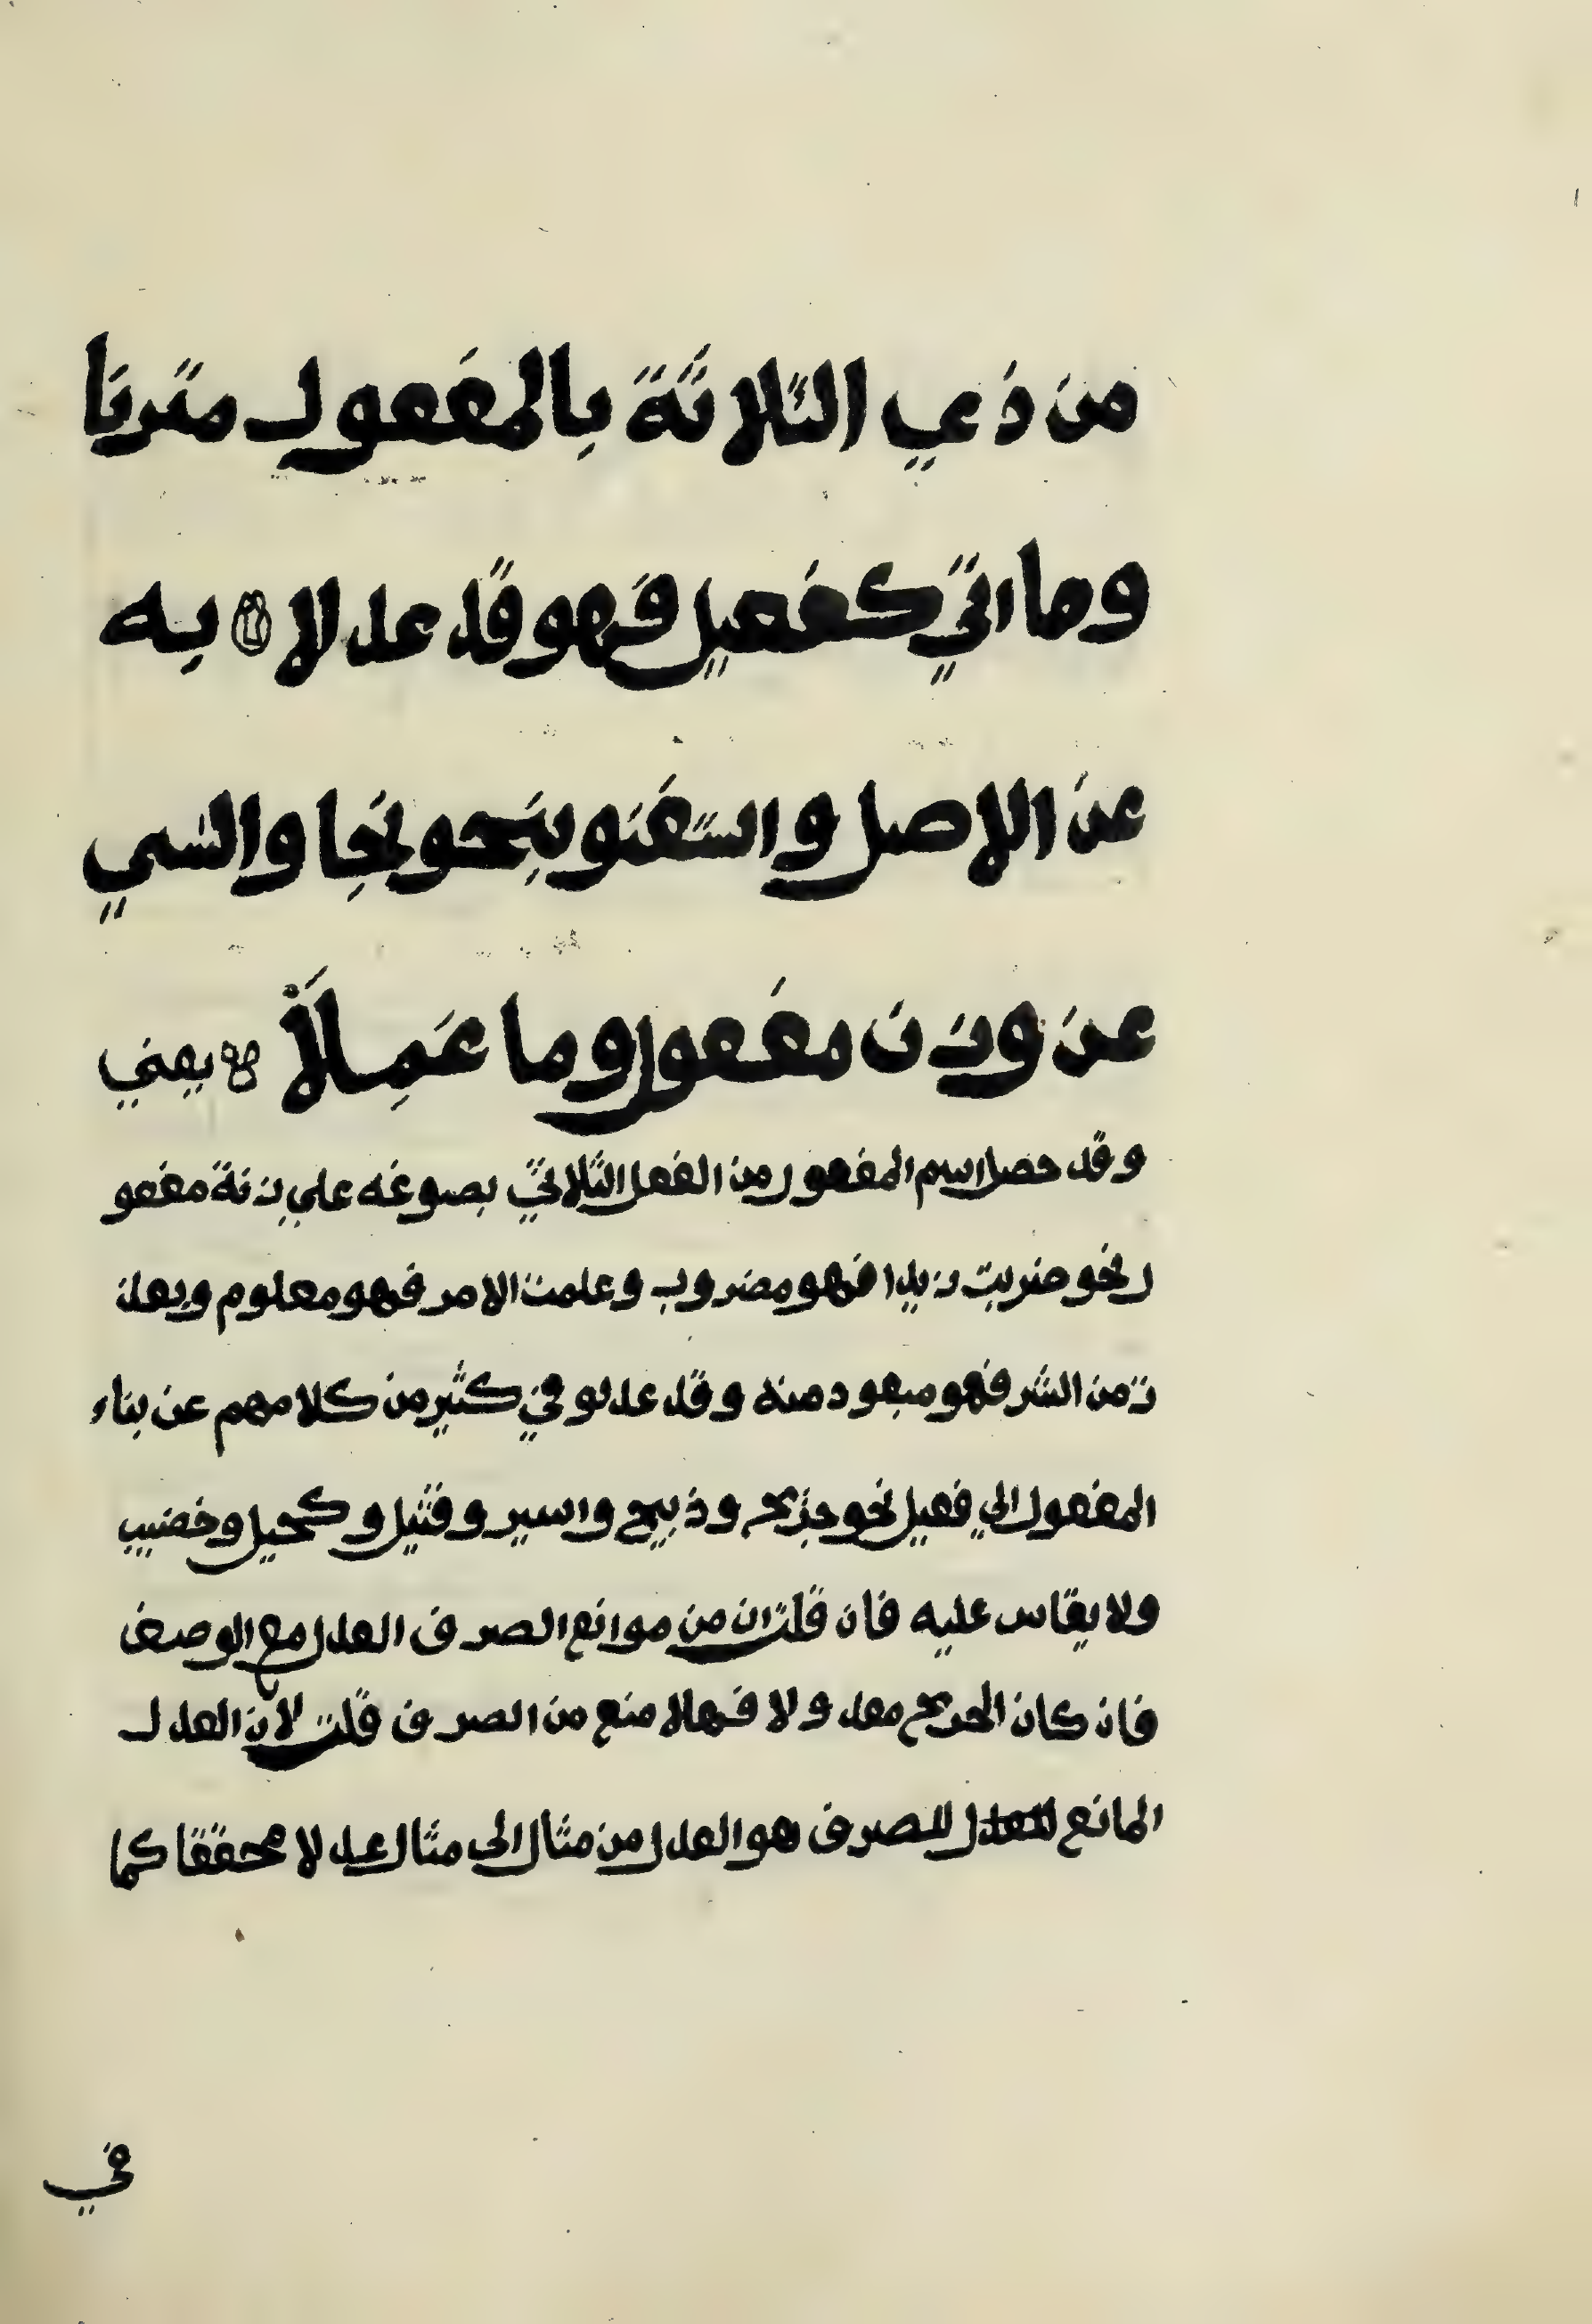 من ذي الثلاثة بالمفعول متزنا
وما اتي كفعيل فهو قد عدلا به
عن الاصل واستغنو بنحو نجا والنسي
عن وزن مفعول وما عملا يعني
وقد حصل اسم المفعول من الفعل الثلاثي بصوغه علي زنة مفعو
ل نحو ضربت زيدا فهو مضروب وعلمت الامر فهو معلوم وبعد
ت من الشر فهو مبعود منه وقد عدلو في كثير من كلامهم عن بناء
المفعول الي فعيل نحو جريح وذبيح واسير وقتيل وكحيل وخضيب
ولا يقاس عليه فان قلت ان من موانع الصرف العدل مع الوصف
فان كان الجريح معدولا فهلا منع من الصرف قلت لان العدل
المانع للصرف هو العدل من مثال الى مثال عدلا محققا كما
في